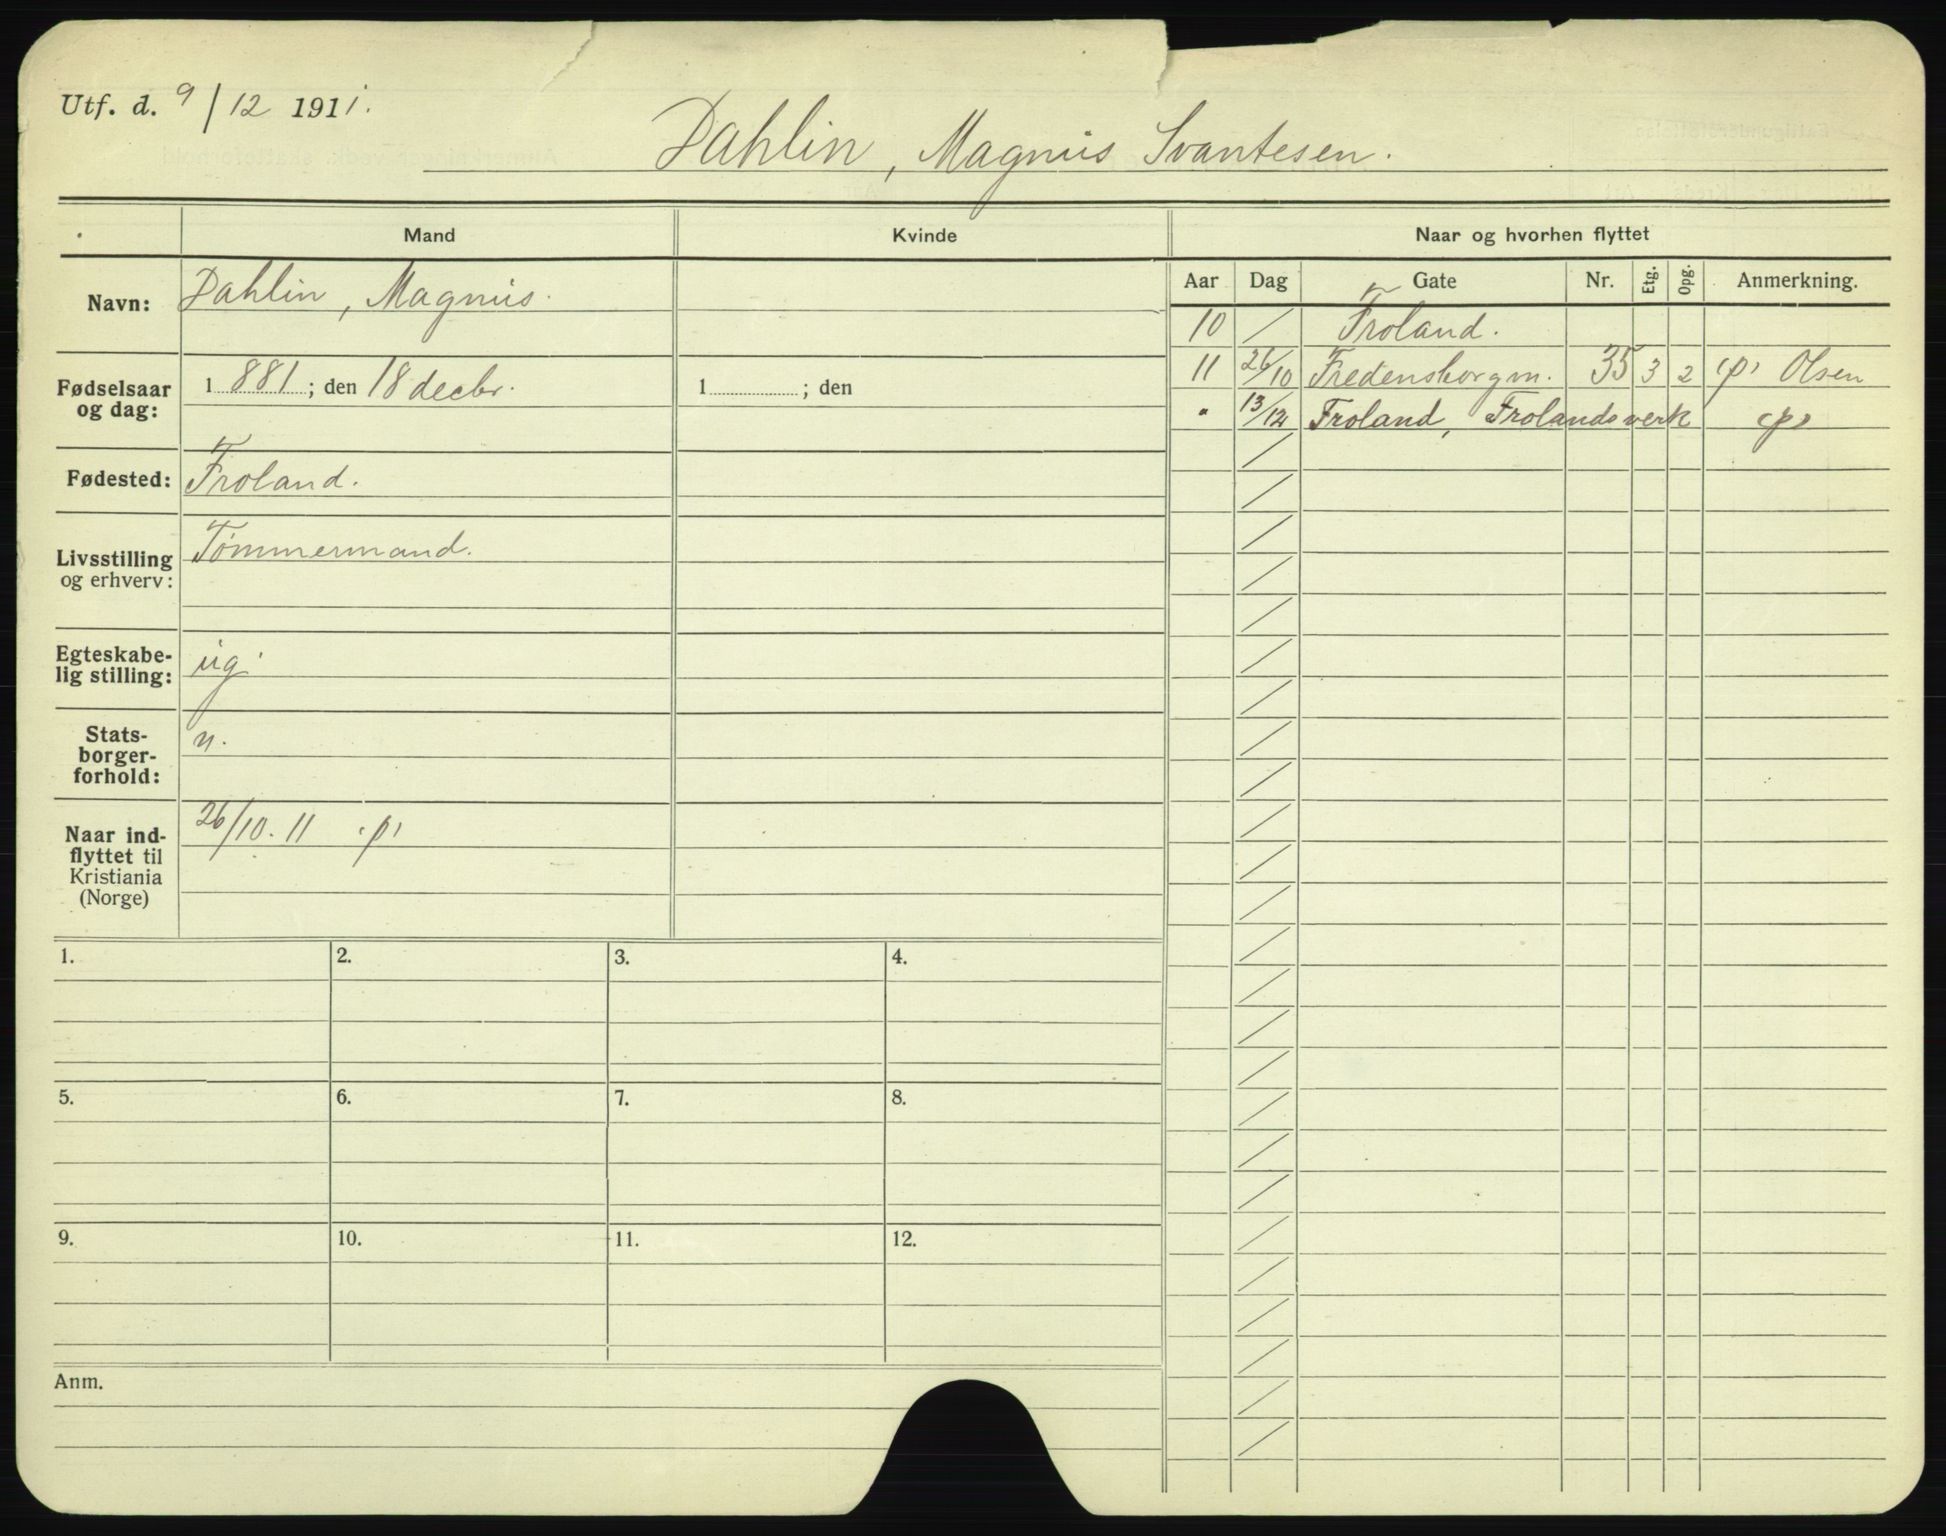 Utf. d. 9/12 1911.
Dahlin, Magnus Svantesen.
Mand
Kvinde
Naar og hvorhen flyttet
Navn: Dahlin, Magnus.
Fødselsaar og dag: 1881; den 18 decbr.
1 ; den
Fødested: Froland.
Livsstilling og erhverv: Tømmermand.
Egteskabe-
lig stilling: ug.
Stats-
borger-
forhold: n.
Naar ind-
flyttet til
Kristiania
(Norge) 26/10. 11 p
Aar Dag Gate Nr. Etg. Opg. Anmerkning.
10 / Froland.
11 26/10 Fredensborgv. 35 3 2 p Olsen
" 13/12 Froland, Frolandsverk p
1. 2. 3. 4.
5. 6. 7. 8.
9. 10. 11. 12.
Anm.